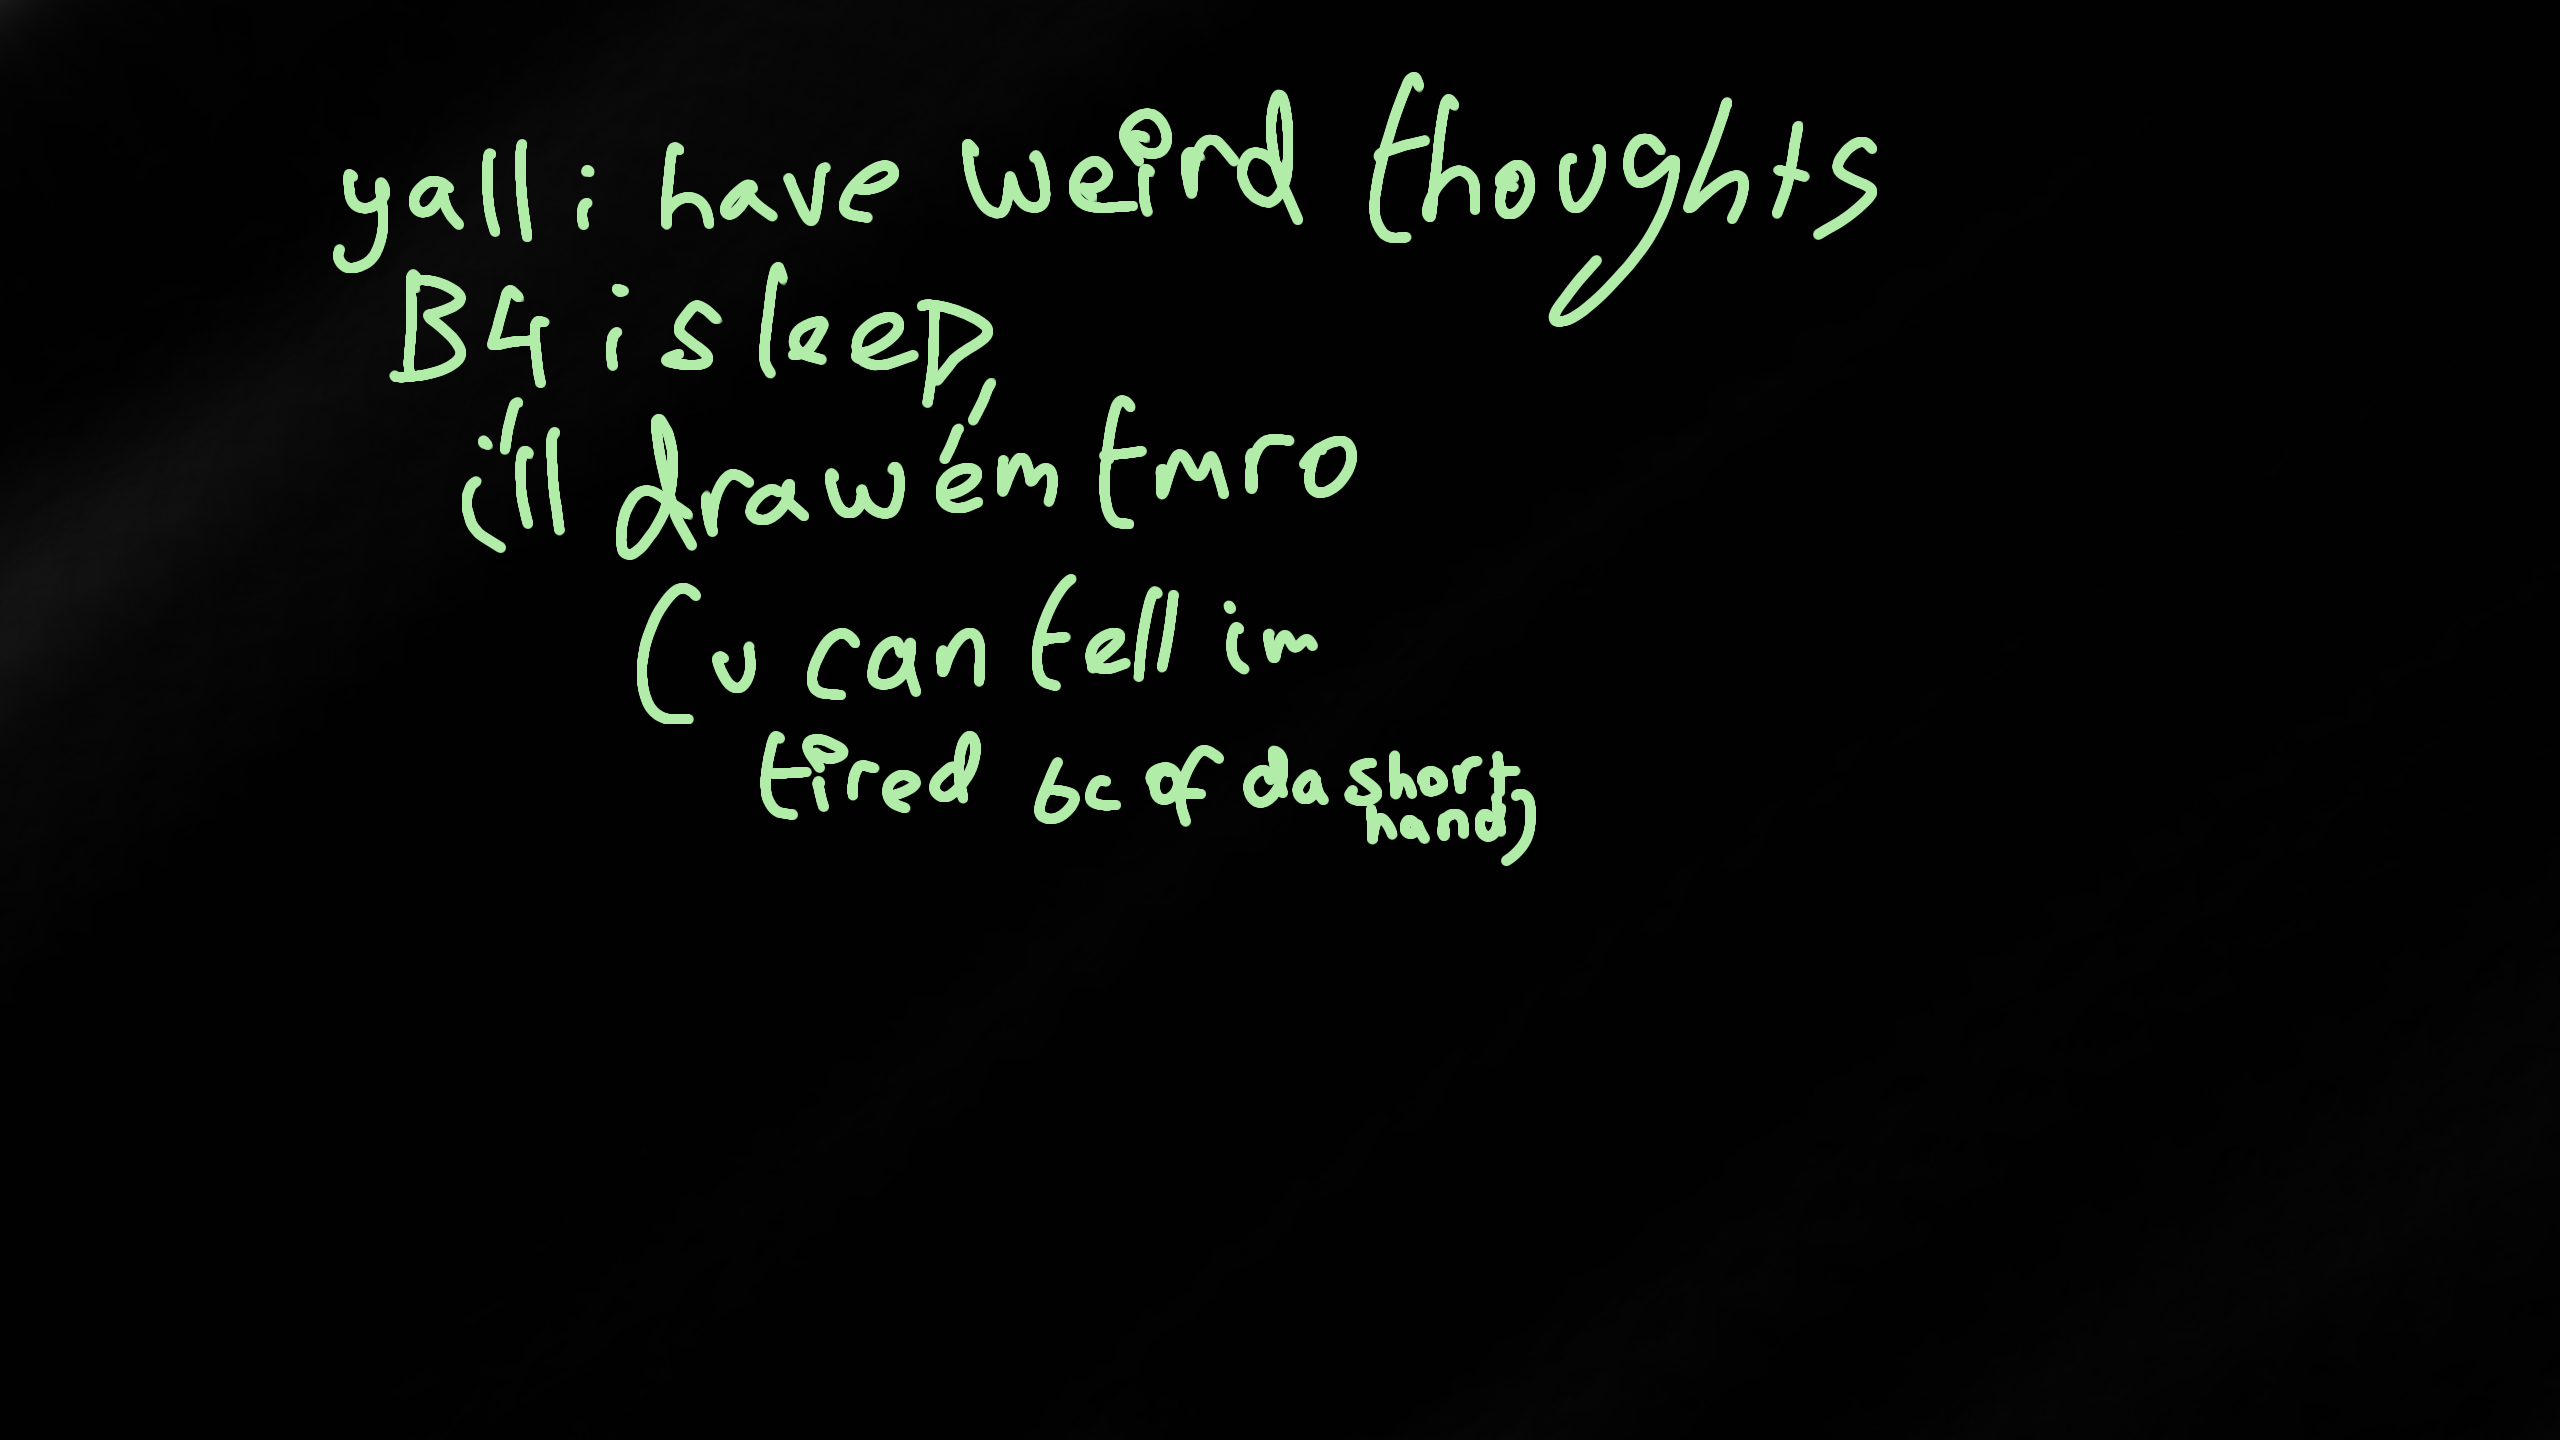 yall i have weird thoughts
B4 i sleep,
i'll draw 'em tmro
(u can tell im
tired bc of da short
hand)